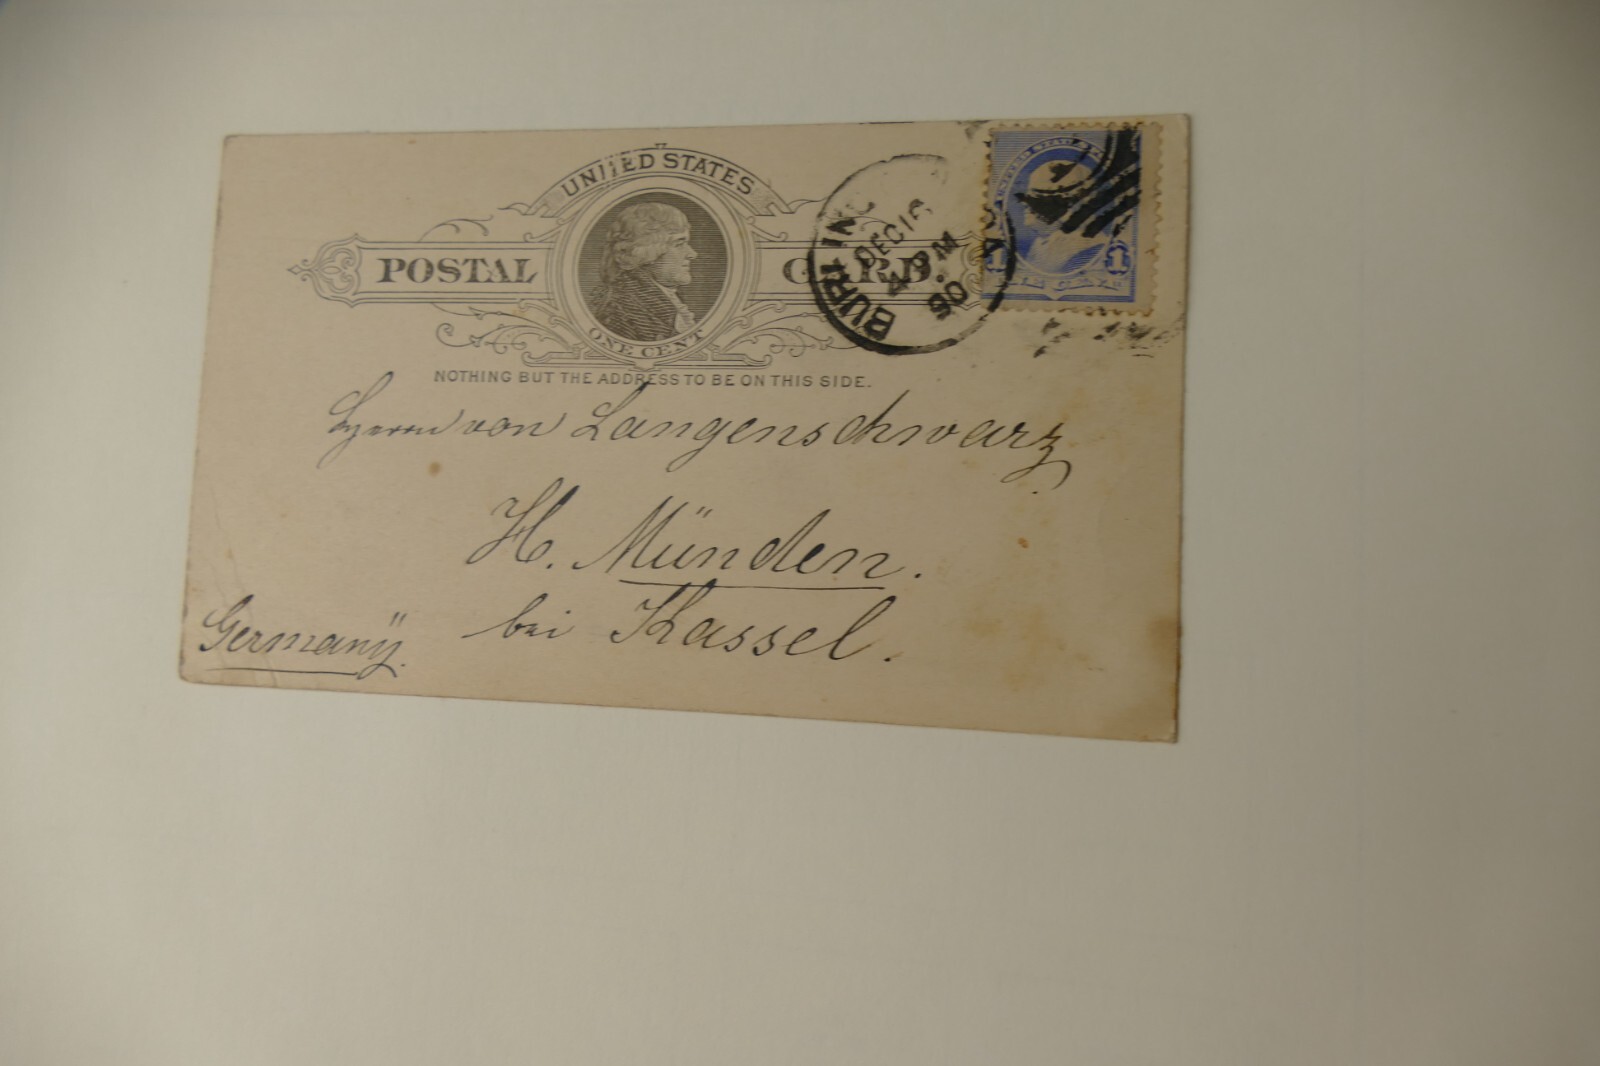 UNITED STATES
POSTAL CARD.
ONE CENT
NOTHING BUT THE ADDRESS TO BE ON THIS SIDE.
BURLING
DEC 16
4 PM
90
UNITED STATES
1 1
Herrn von Langenschwarz
H. Münden.
bei Kassel.
Germanÿ.